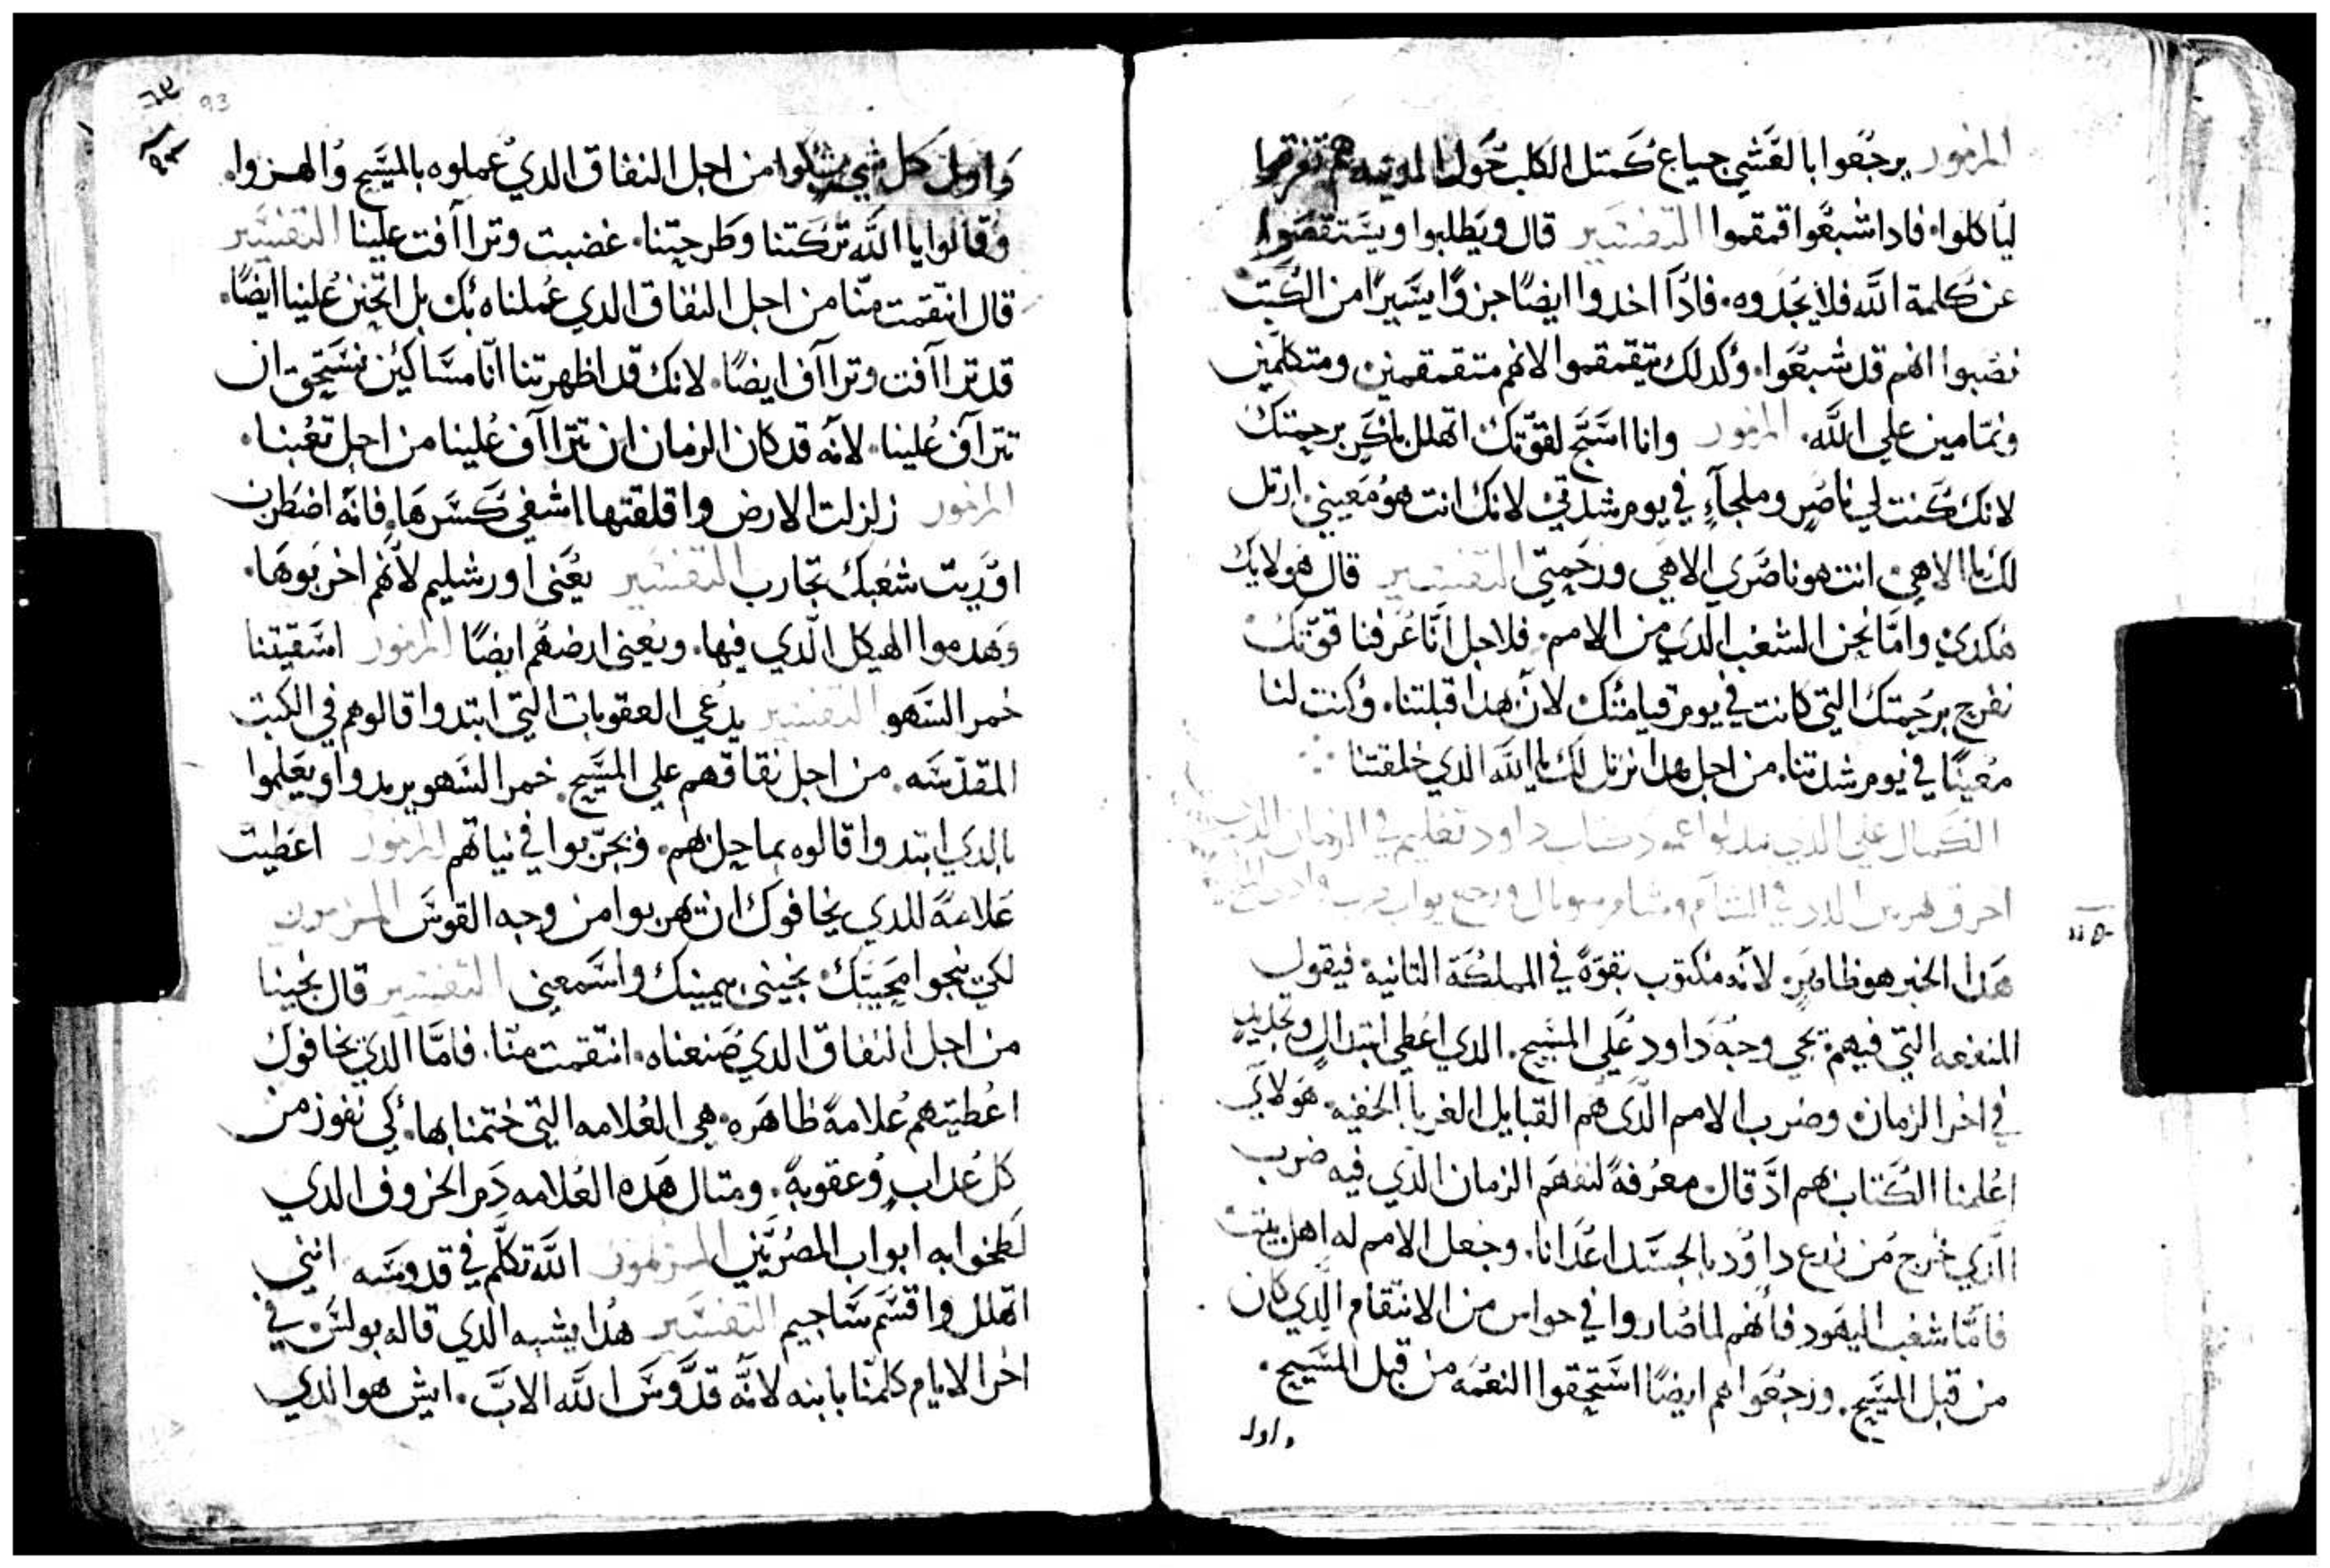 المزمور يرجعوا بالعشي جياع كمتل الكلب حول المدينه هم تفرقوا
لياكلوا. فادا شبعوا قمقموا التفسير قال ويطلبوا ويستقصوا
عن كلمة الله فلا يجدوه. فادا اخدوا ايضًا جزوًا يسيرًا من الكتب
نصبوا انهم قد شبعوا. وكدلك يتقمقموا لانهم متقمقمين ومتكلمين
ونمامين علي الله. المزمور وانا اسبح لقوتك اتهلل باكر برحمتك
لانك كنت لي ناصر وملجاء في يوم شدتي لانك انت هو معيني ارتل
لك يا الاهي. انت هو ناصري الاهي ورحمتي التفسير قال هولايك
هكدي واما نحن الشعب الدي من الامم. فلاجل انا عرفنا قوتك
نفرح برحمتك التي كانت في يوم قيامتك لان هدا قبلتنا. وكنت لنا
معينًا في يوم شدتنا. من اجل هدا نرتل لك يا الله الدي خلقتنا
الكمال علي الدي داود تعليم في الزمان الدي
احرق الشام
هدا الخبر هو ظاهر. لانه مكتوب بقوة في المملكة التانية. فيقول
المنفعه التي فيهم تجي وجه داود علي المسيح. الدي اعطي ابتدال وتجديد
في اخر الزمان. وضرب الامم الدي هم القبايل الغربا الخفيه. هولاي
اعلمنا الكتاب هم اد قال معرفة لنفهم الزمان الدي فيه ضرب
الدي خرج من زرع داود بالجسد اعدانا. وجعل الامم له اهل بيت
فاما شعب اليهود فانهم لما صاروا في حواس من الانتقام الدي كان
من قبل المسيح. ورجعوا هم ايضًا استحقوا النعمه من قبل المسيح.
واول
93
واول كل شي شكوا من اجل النفاق الدي عملوه بالمسيح والهزوا.
وقالوا يا الله تركتنا وطرحتنا. غضبت وتراافت علينا التفسير
قال انتقمت منا من اجل النفاق الدي عملناه بك بل اتحنن علينا ايضًا.
قد تراافت وتراف ايضًا. لانك قد اظهرتنا انا مساكين نستحق ان
تتراف علينا. لانه قد كان الزمان ان تتراف علينا من اجل تعبنا.
المزمور زلزلت الارض واقلقتها اشفي كسرها. فانه اضطرب
اوريت شعبك تجارب التفسير يعني اورشليم لانهم اخربوها.
وهدموا الهيكل الدي فيها. ويعني ارضهم ايضًا المزمور اسقيتنا
خمر السهو التفسير يدعي العقوبات التي ابتدوا قالوهم في الكتب
المقدسه. من اجل نفاقهم علي المسيح. خمر السهو يريدوا ويعلموا
بالدي ابتدوا قالوه بما حل بهم. ويجربوا في نياتهم المزمور اعطيت
علامة للدي يخافوك ان يهربوا من وجه القوس المزمور
لكي ينجوا محبيك. نجيني بيمينك واسمعني التفسير قال نجينا
من اجل النفاق الدي صنعناه. انتقمت منا. فاما الدي يخافوك
اعطيتهم علامة ظاهره. هي العلامه التي ختمنا بها. كي نفوز من
كل عداب وعقوبة. ومتال هده العلامه دم الخروف الدي
لطخوا به ابواب المصريين المزمور الله تكلم في قدوسه انني
اتهلل واقسم ساجيم التفسير هدا يشبه الدي قاله بولس في
اخر الايام كلمنا بابنه لانه قدوس الله الاب. ايش هو الدي